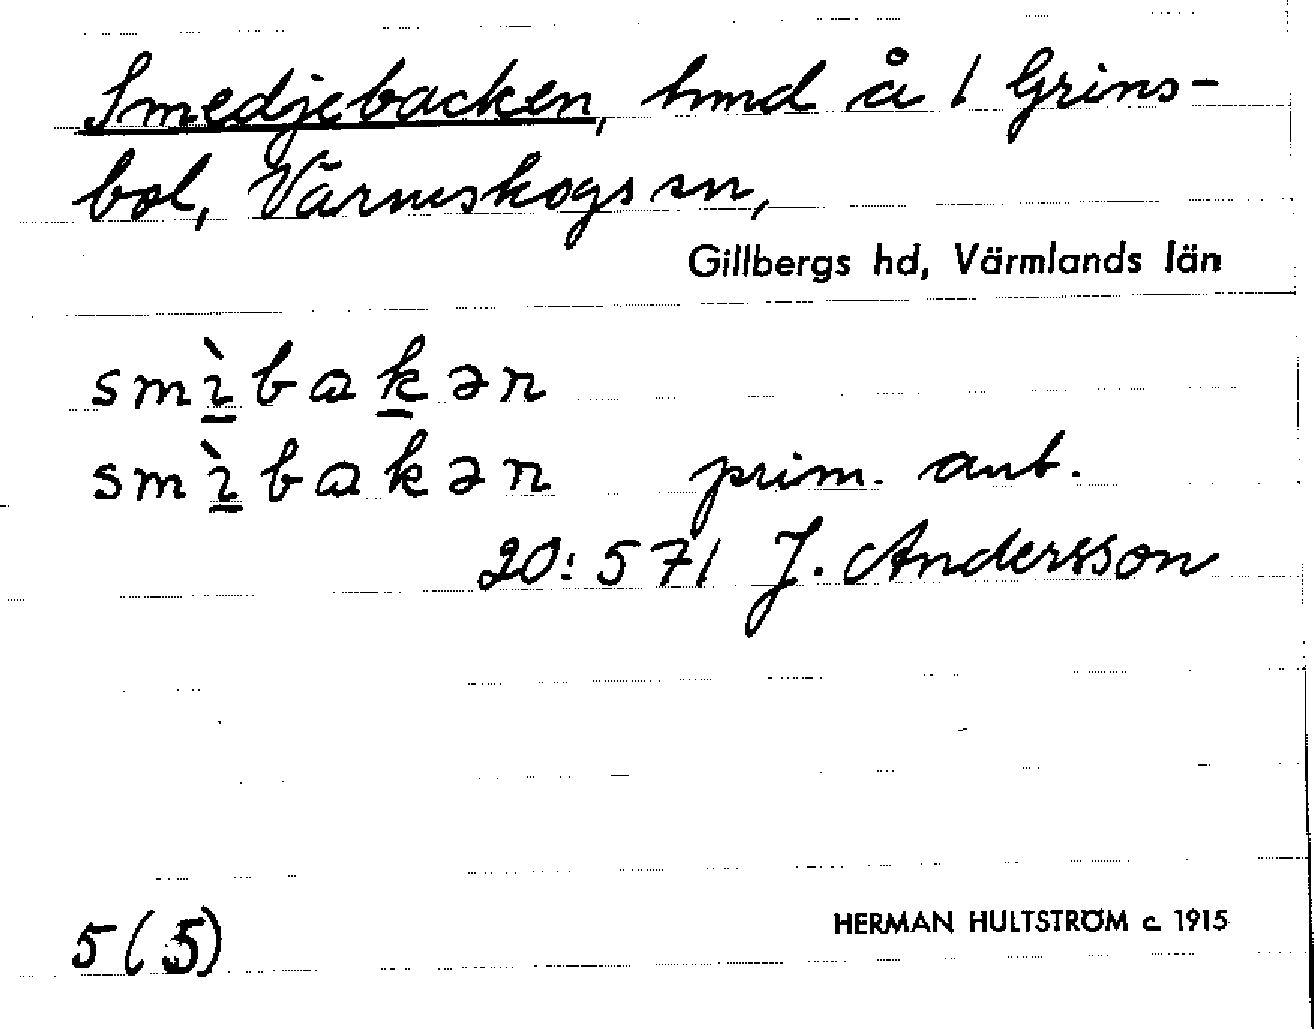 Smedjebacken, hmd å 1 Grins-
bol, Värmskogs sn,
Gillbergs hd, Värmlands län
smı�[̀]bakən
smı̀bakən prim. ant.
20:571 J. Andersson
5(5)
HERMAN HULTSTRÖM c. 1915